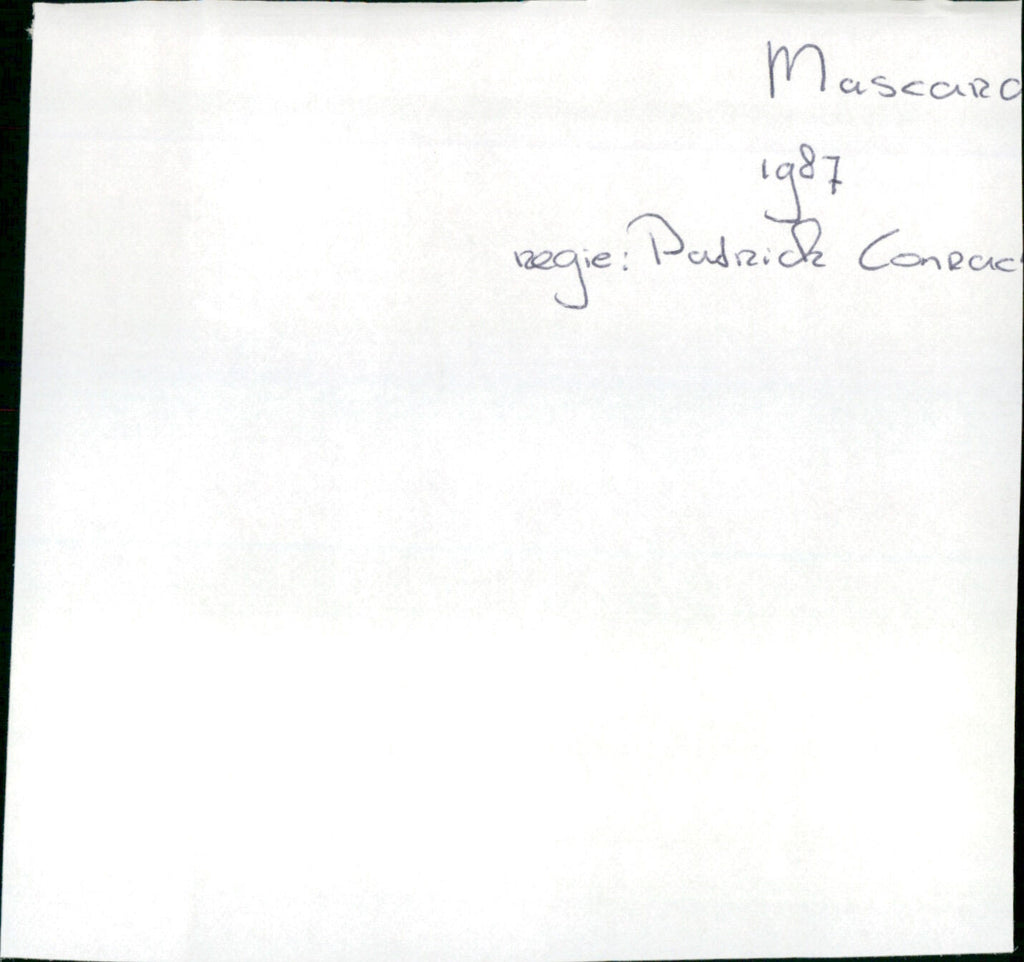 Mascara
1987
regie: Patrick Conrad